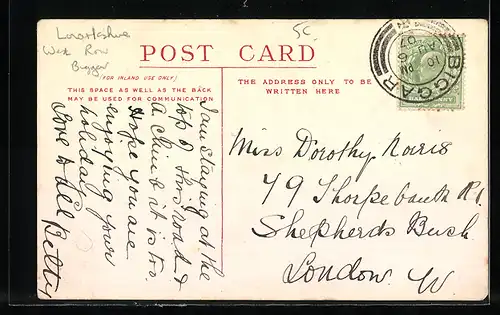 Lanarkshire
West Row
Biggar
5c
POST CARD
(FOR INLAND USE ONLY)
THIS SPACE AS WELL AS THE BACK
MAY BE USED FOR COMMUNICATION
THE ADDRESS ONLY TO BE
WRITTEN HERE
I am staying at the
top of this road &
a climb it is too.
Hope you are
enjoying your
holiday
Love to all Betty
BIGGAR
AU 10
07
HALFPENNY
Miss Dorothy Norris
79 Thorpebank Rd.
Shepherds Bush
London. W